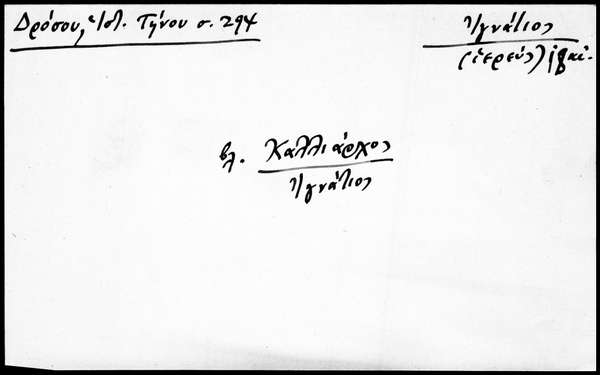 Δρόσου, Ἱστ. Τήνου σ. 294
Ἰγνάτιος
(ἱερεύς) ιβ αἰ.
βλ. Καλλιάρχος
Ἰγνάτιος